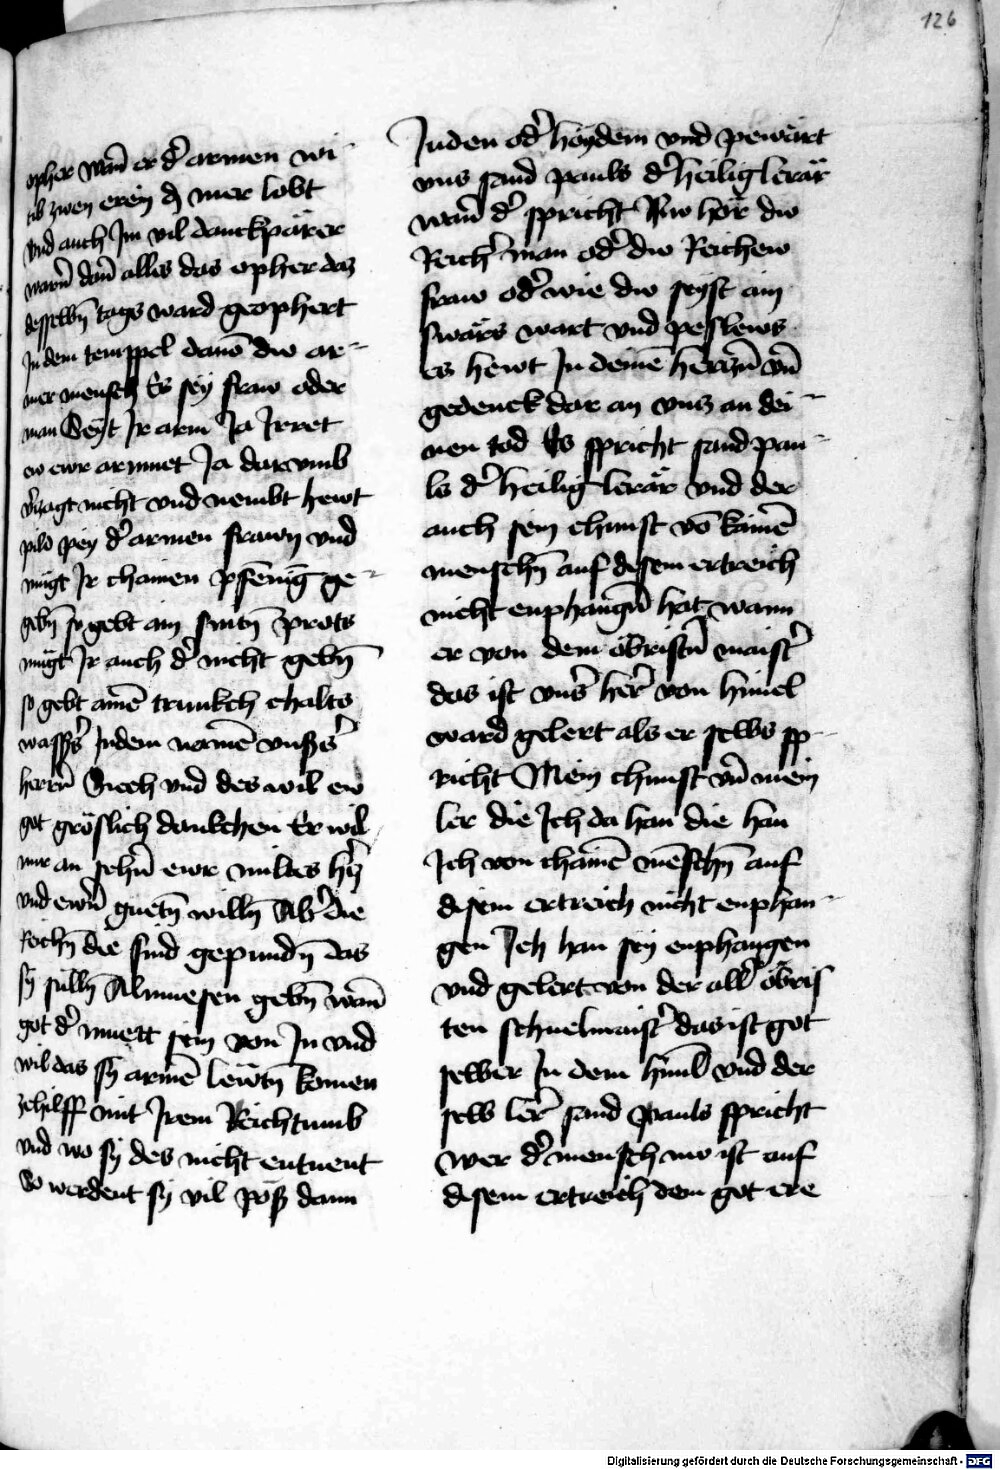 126
opher wan̄ er d͛ armen wi
tib zwen erein ꝗ mer lobt
vnd auch Im vil danckpärer
warn̄ dan̄ alles das opher das
desselbn̄ tags ward geophert
In dem temppel dauō dw ar
mer mensch Es sey fraw oder
man Seyt Ir arm Ja Irret
ew ewr armuet Ja darvmb
v͛zagt nicht vnd nembt hewt
pild pey d͛ armen frawn vnd
mügt Ir chainen pfenīg ge
gebn̄ so gebt ain snitn̄ prots
mügt Ir auch d͛ nicht gebn̄
so gebt ainē trunkch chalts
wass͛s Indem namē vnss͛s
herrn̄ Siech vnd des wil ew
got gröslich danckchen Er wil
nur an sehn̄ ewr miltes h͛z
vnd ewrn̄ guetn̄ willn̄ Ab͛ die
reichn̄ die sind gepundn̄ das
sy sülln̄ Almuesen gebn̄ wan̄
got d͛ muett sein von In vnd
wil das sy armē lewtn̄ komen
zehilff mit Irem Reichtumb
vnd wo sy des nicht entuent
So werdent sy vil pöss dann
Juden od͛ haydem vnd pewärt
vns sand pauls d͛ heilig lerär
wan̄ d͛ spricht Nw hör dw
Reich͛ man od͛ dw Reichew
fraw od͛ wie dw seyst ain
swärs wart vnd peslews
es hewt In deinē herczn̄ vn̄
gedenck dar an vncz an dei
nen tod Es spricht sand pau
ls d͛ heilig lerär vnd der
auch sein chunst vō kainē
menschn̄ auf disem ertreich
nicht enphangn̄ hat wann
er von dem öbristn̄ maist͛
das ist vns͛ her͛ von himel
ward gelert als er selbs sp
richt Mein chunst vn̄ mein
ler die Ich da han die han
Ich von chainē mēschn̄ auf
disem ertreich nicht enphan
gen Ich han sey enphangen
vnd gelert von der all͛ öbris
ten schuelmaist͛ das ist got
selber In dem himl vnd der
selb ler͛ sand pauls spricht
wer d͛ mensch nw ist auf
disem ertreich dem got ere
Digitalisierung gefördert durch die Deutsche Forschungsgemeinschaft - DFG